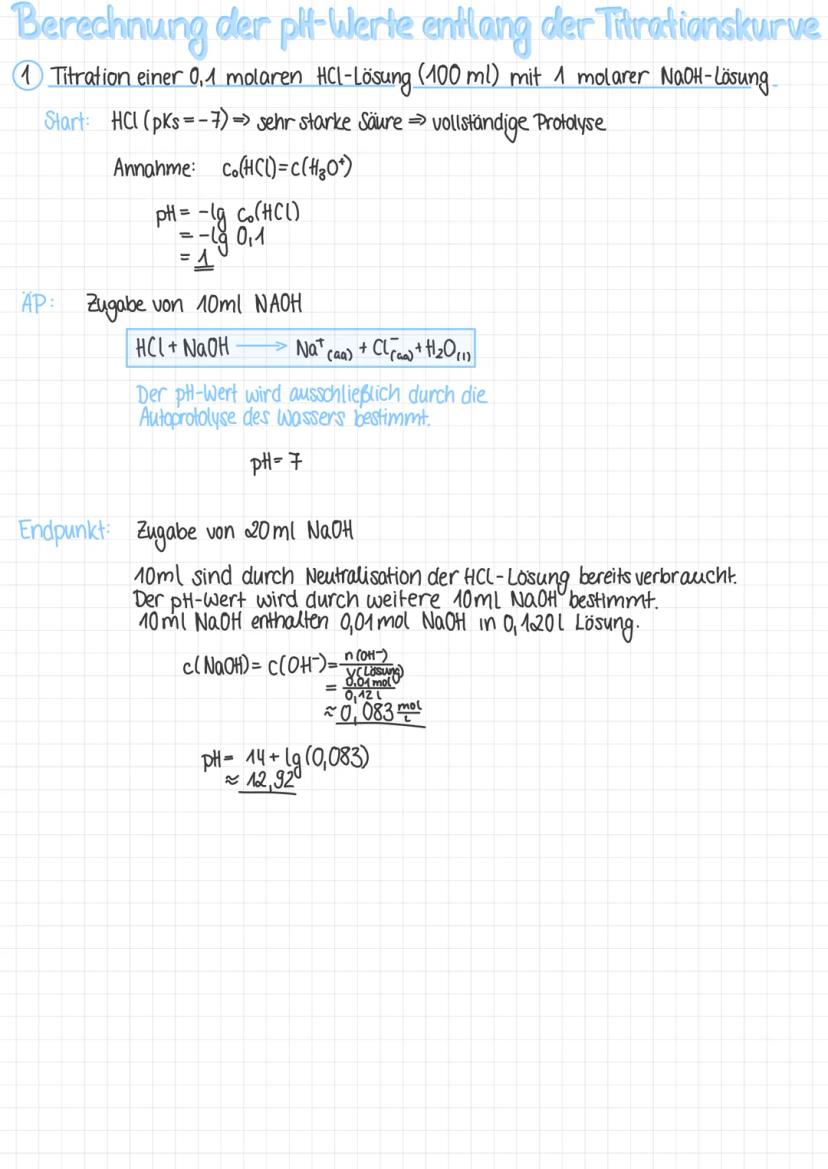 Berechnung der pH-Werte entlang der Titrationskurve
1 Titration einer 0,1 molaren HCl-Lösung (100 ml) mit 1 molarer NaOH-Lösung
Start: HCl (pKs = -7) ⇒ sehr starke Säure ⇒ vollständige Protolyse
Annahme: c₀(HCl)=c(H₃O⁺)
pH = -lg c₀(HCl)
= -lg 0,1
= 1
ÄP: Zugabe von 10ml NAOH
HCl + NaOH ⟶ Na⁺(aq) + Cl⁻(aq) + H₂O(l)
Der pH-Wert wird ausschließlich durch die
Autoprotolyse des Wassers bestimmt.
pH = 7
Endpunkt: Zugabe von 20ml NaOH
10ml sind durch Neutralisation der HCl-Lösung bereits verbraucht.
Der pH-Wert wird durch weitere 10ml NaOH bestimmt.
10ml NaOH enthalten 0,01 mol NaOH in 0,120 l Lösung.
c(NaOH) = c(OH⁻) = n(OH⁻)/V(Lösung)
= 0,01 mol/0,12 l
≈ 0,083 mol/L
pH = 14 + lg (0,083)
≈ 12,92